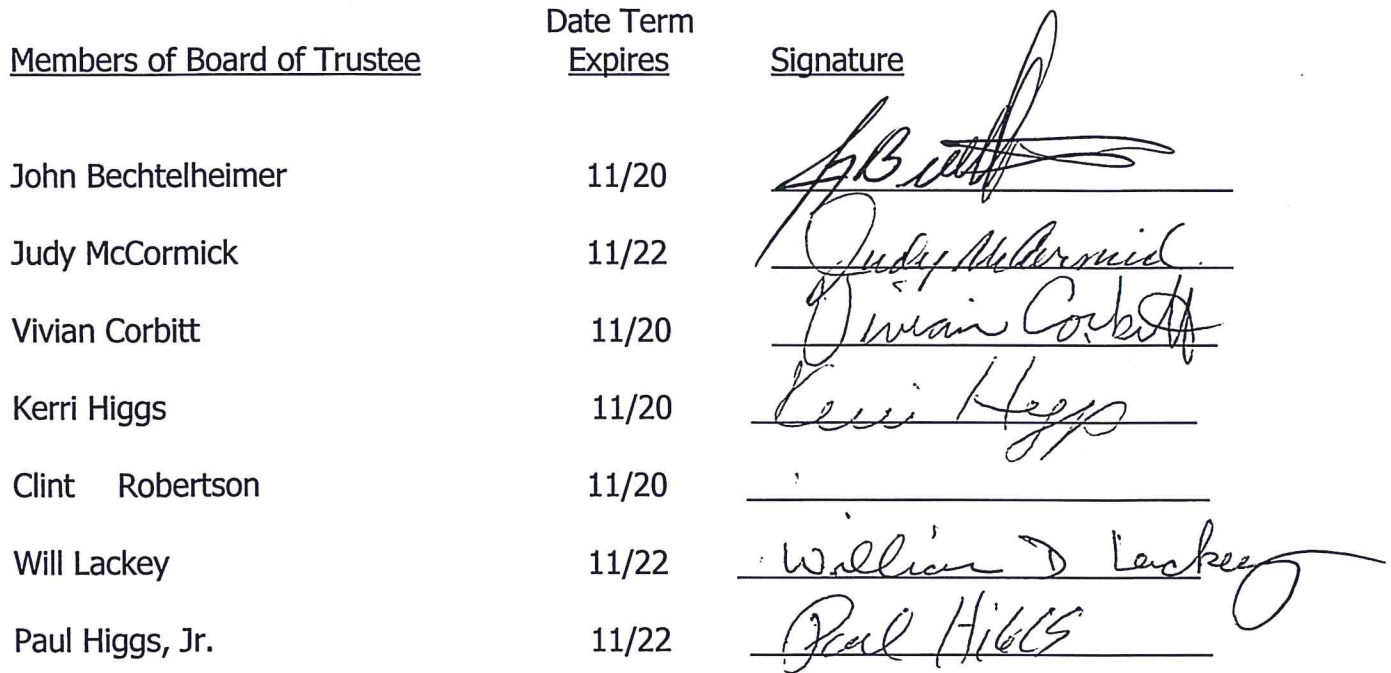 Date Term
Members of Board of Trustee Expires Signature
John Bechtelheimer 11/20
Judy McCormick 11/22 Judy McCormick
Vivian Corbitt 11/20 Vivian Corbitt
Kerri Higgs 11/20 Kerri Higgs
Clint Robertson 11/20
Will Lackey 11/22 William D Lackey
Paul Higgs, Jr. 11/22 Paul HiGGS